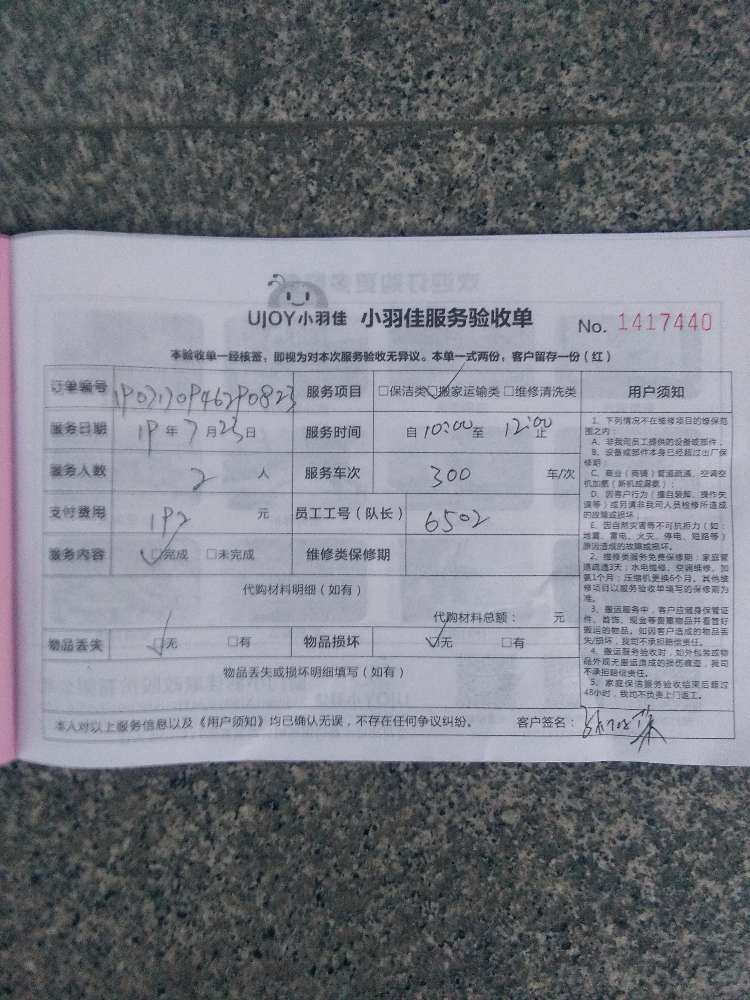 UJOY小羽佳 小羽佳服务验收单 No. 1417440
本验收单一经核签，即视为对本次服务验收无异议。本单一式两份，客户留存一份（红）
订单编号 1907170946290823 服务项目 □保洁类 □搬家运输类 □维修清洗类
服务日期 19 年 7 月 23 日 服务时间 自 10:00 至 12:00 止
服务人数 2 人 服务车次 300 车/次
支付费用 192 元 员工工号（队长） 6502
服务内容 □完成 □未完成 维修类保修期
代购材料明细（如有）
代购材料总额： 元
物品丢失 □无 □有 物品损坏 □无 □有
物品丢失或损坏明细填写（如有）
本人对以上服务信息以及《用户须知》均已确认无误，不存在任何争议纠纷。 客户签名：
用户须知
1、下列情况不在维修项目的维保范
围之内：
A、非我司员工提供的设备或部件；
B、设备或部件本身已经超过出厂保
修期；
C、商业（商铺）管道疏通、空调空
机加氨（新机或漏氨）；
D、因客户行为（擅自装卸、操作失
误等）或另请非我司人员检修所造成
的故障或损坏；
E、因自然灾害等不可抗拒力（如：
地震、雷电、火灾、停电、短路等）
原因造成的故障或损坏。
2、维修类服务免费保修期：家庭管
道疏通3天；水电维修、空调维修、加
氨1个月；压缩机更换6个月。其他维
修项目以服务验收单填写的保修期为
准。
3、搬运服务中，客户应随身保管证
件、首饰、现金等贵重物品并看管好
搬运的物品。如因客户造成的物品丢
失/损坏，我司不承担赔偿责任。
4、搬运服务验收时，如外包装或物
品外观无搬运造成的损伤痕迹，我司
不承担赔偿责任。
5、家庭保洁服务验收结束后超过
48小时，我司不负责上门返工。